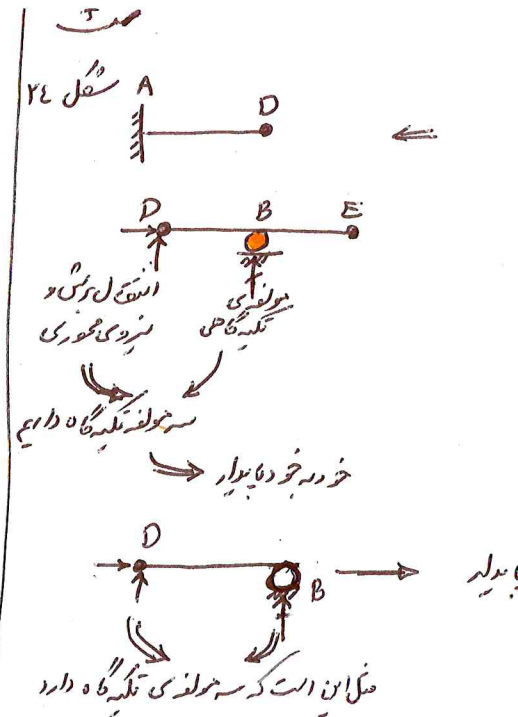 شکل ۲۴
A
D
D B E
انتقال برش و
نیروی محوری
مولفه‌ی
تکیه‌گاهی
سه مولفه تکیه‌گاه داریم
خود به خود پایدار
D
B
پایدار
مثل این است که سه مولفه‌ی تکیه‌گاه دارد